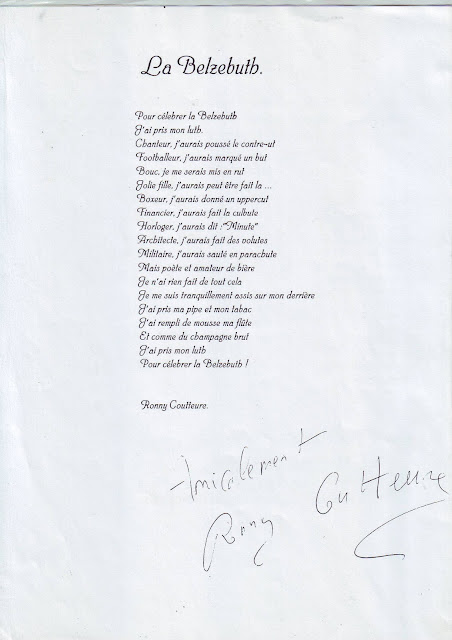 La Belzebuth.
Pour célébrer la Belzebuth
J'ai pris mon luth.
Chanteur, j'aurais poussé le contre-ut
Footballeur, j'aurais marqué un but
Bouc, je me serais mis en rut
Jolie fille, j'aurais peut être fait la ...
Boxeur, j'aurais donné un uppercut
Financier, j'aurais fait la culbute
Horloger, j'aurais dit :"Minute"
Architecte, j'aurais fait des volutes
Militaire, j'aurais sauté en parachute
Mais poète et amateur de bière
Je n'ai rien fait de tout cela
Je me suis tranquillement assis sur mon derrière
J'ai pris ma pipe et mon tabac
J'ai rempli de mousse ma flûte
Et comme du champagne brut
J'ai pris mon luth
Pour célébrer la Belzebuth !
Ronny Coutteure.
Amicalement
Ronny Coutteure